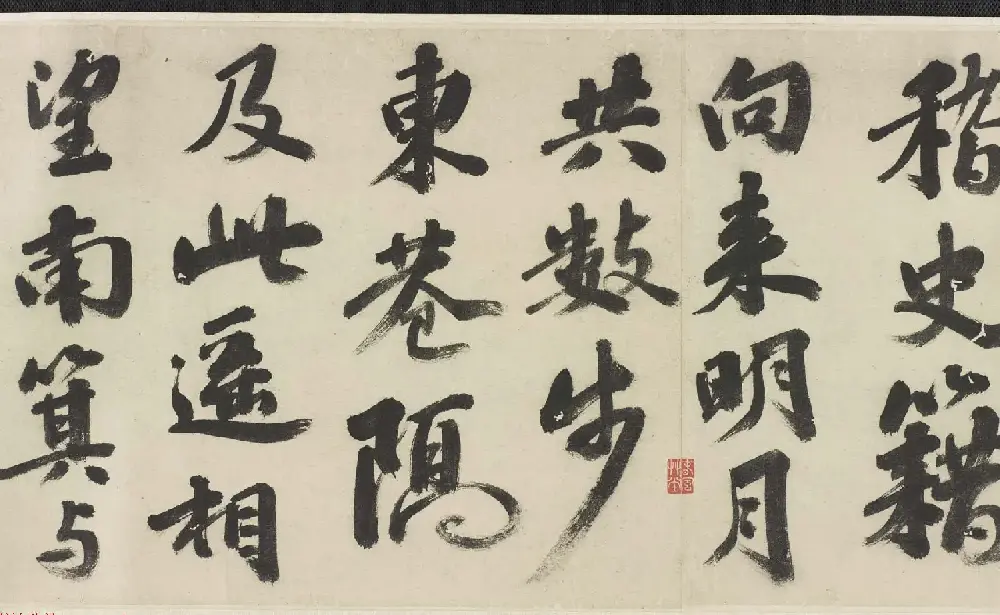 稽史籍
向来明月
共数步
東巷隅
及此遥相
望南箕与